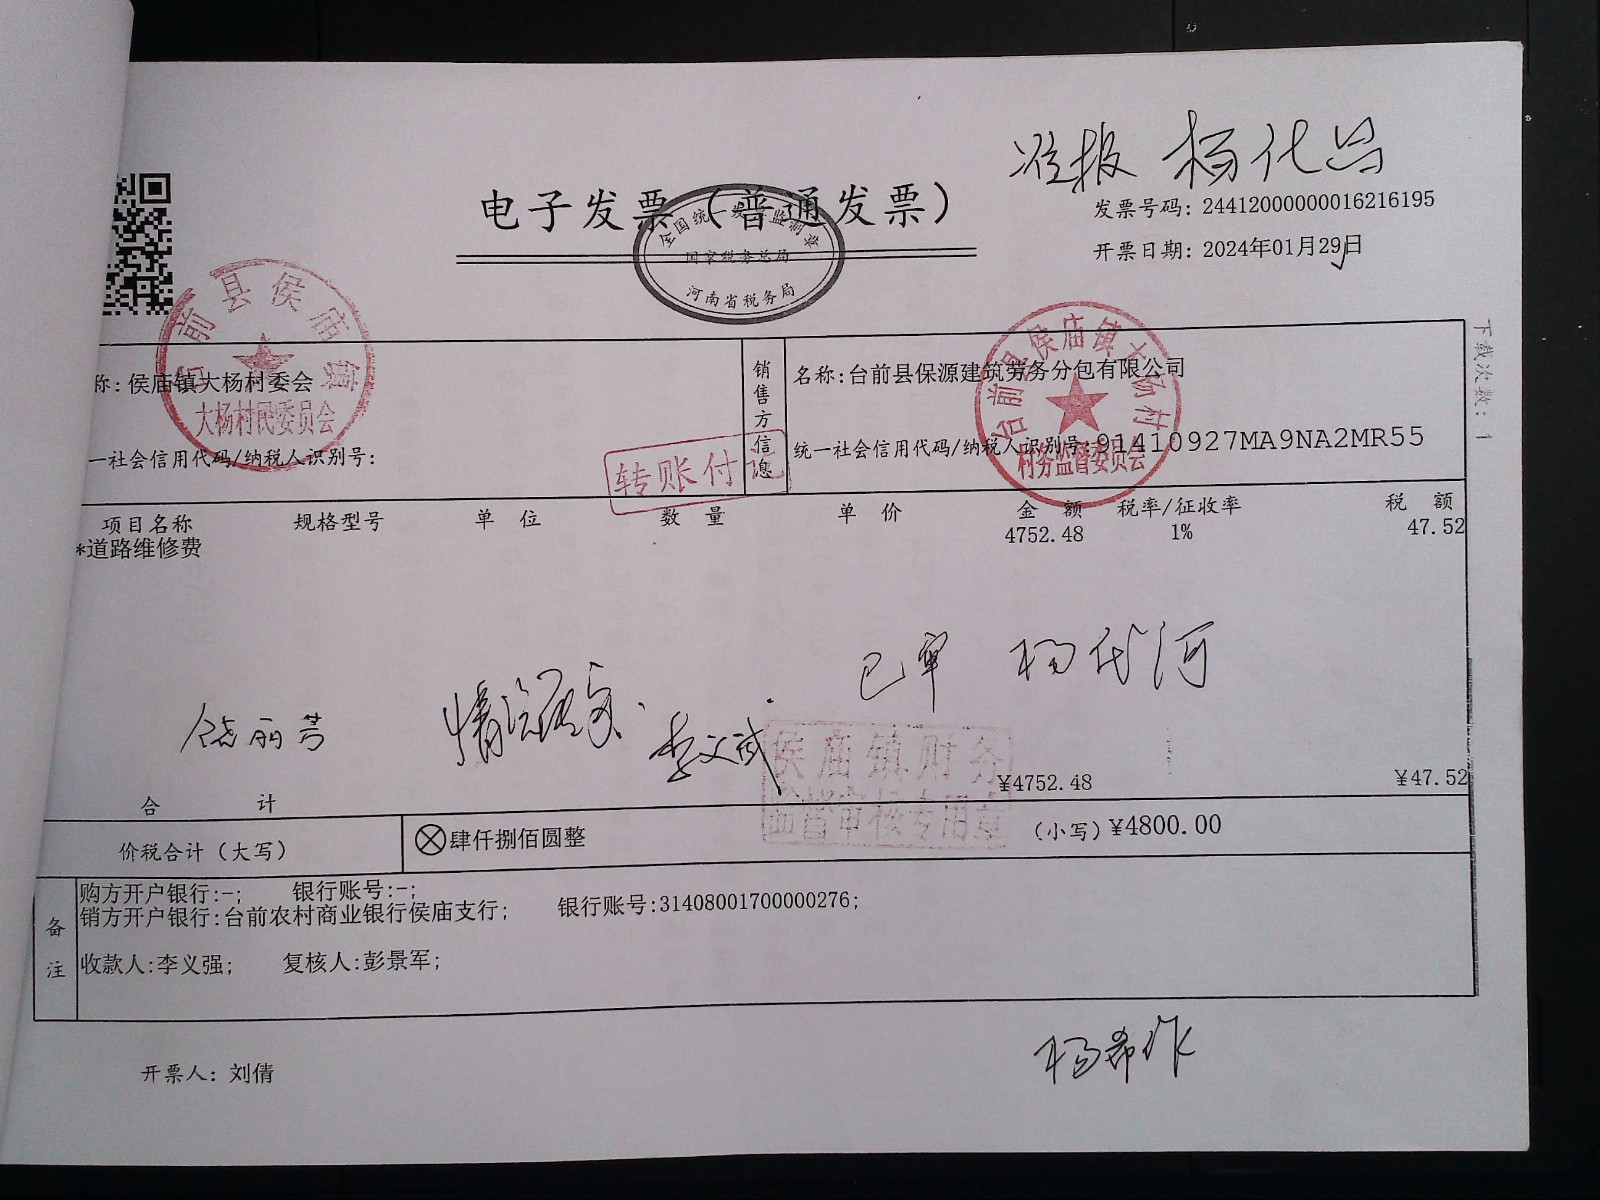 准报 杨化岀
电子发票（普通发票）
全国统一发票监制章
国家税务总局
河南省税务局
发票号码：24412000000016216195
开票日期：2024年01月29日
下载次数：1
台前县侯庙镇
大杨村民委员会
称：侯庙镇大杨村委会
一社会信用代码/纳税人识别号：
转账付讫
销售方信息
名称：台前县保源建筑劳务分包有限公司
统一社会信用代码/纳税人识别号：91410927MA9NA2MR55
台前县侯庙镇大杨村
村务监督委员会
项目名称 规格型号 单位 数量 单价 金额 税率/征收率 税额
*道路维修费 4752.48 1% 47.52
已审 杨代河
饶丽芳
情况属实. 李义斌.
侯庙镇财务
监督审核专用章
合计 ¥4752.48 ¥47.52
价税合计（大写） ⊗肆仟捌佰圆整 （小写）¥4800.00
备注
购方开户银行:-; 银行账号:-;
销方开户银行:台前农村商业银行侯庙支行; 银行账号:31408001700000276;
收款人:李义强; 复核人:彭景军;
开票人：刘倩